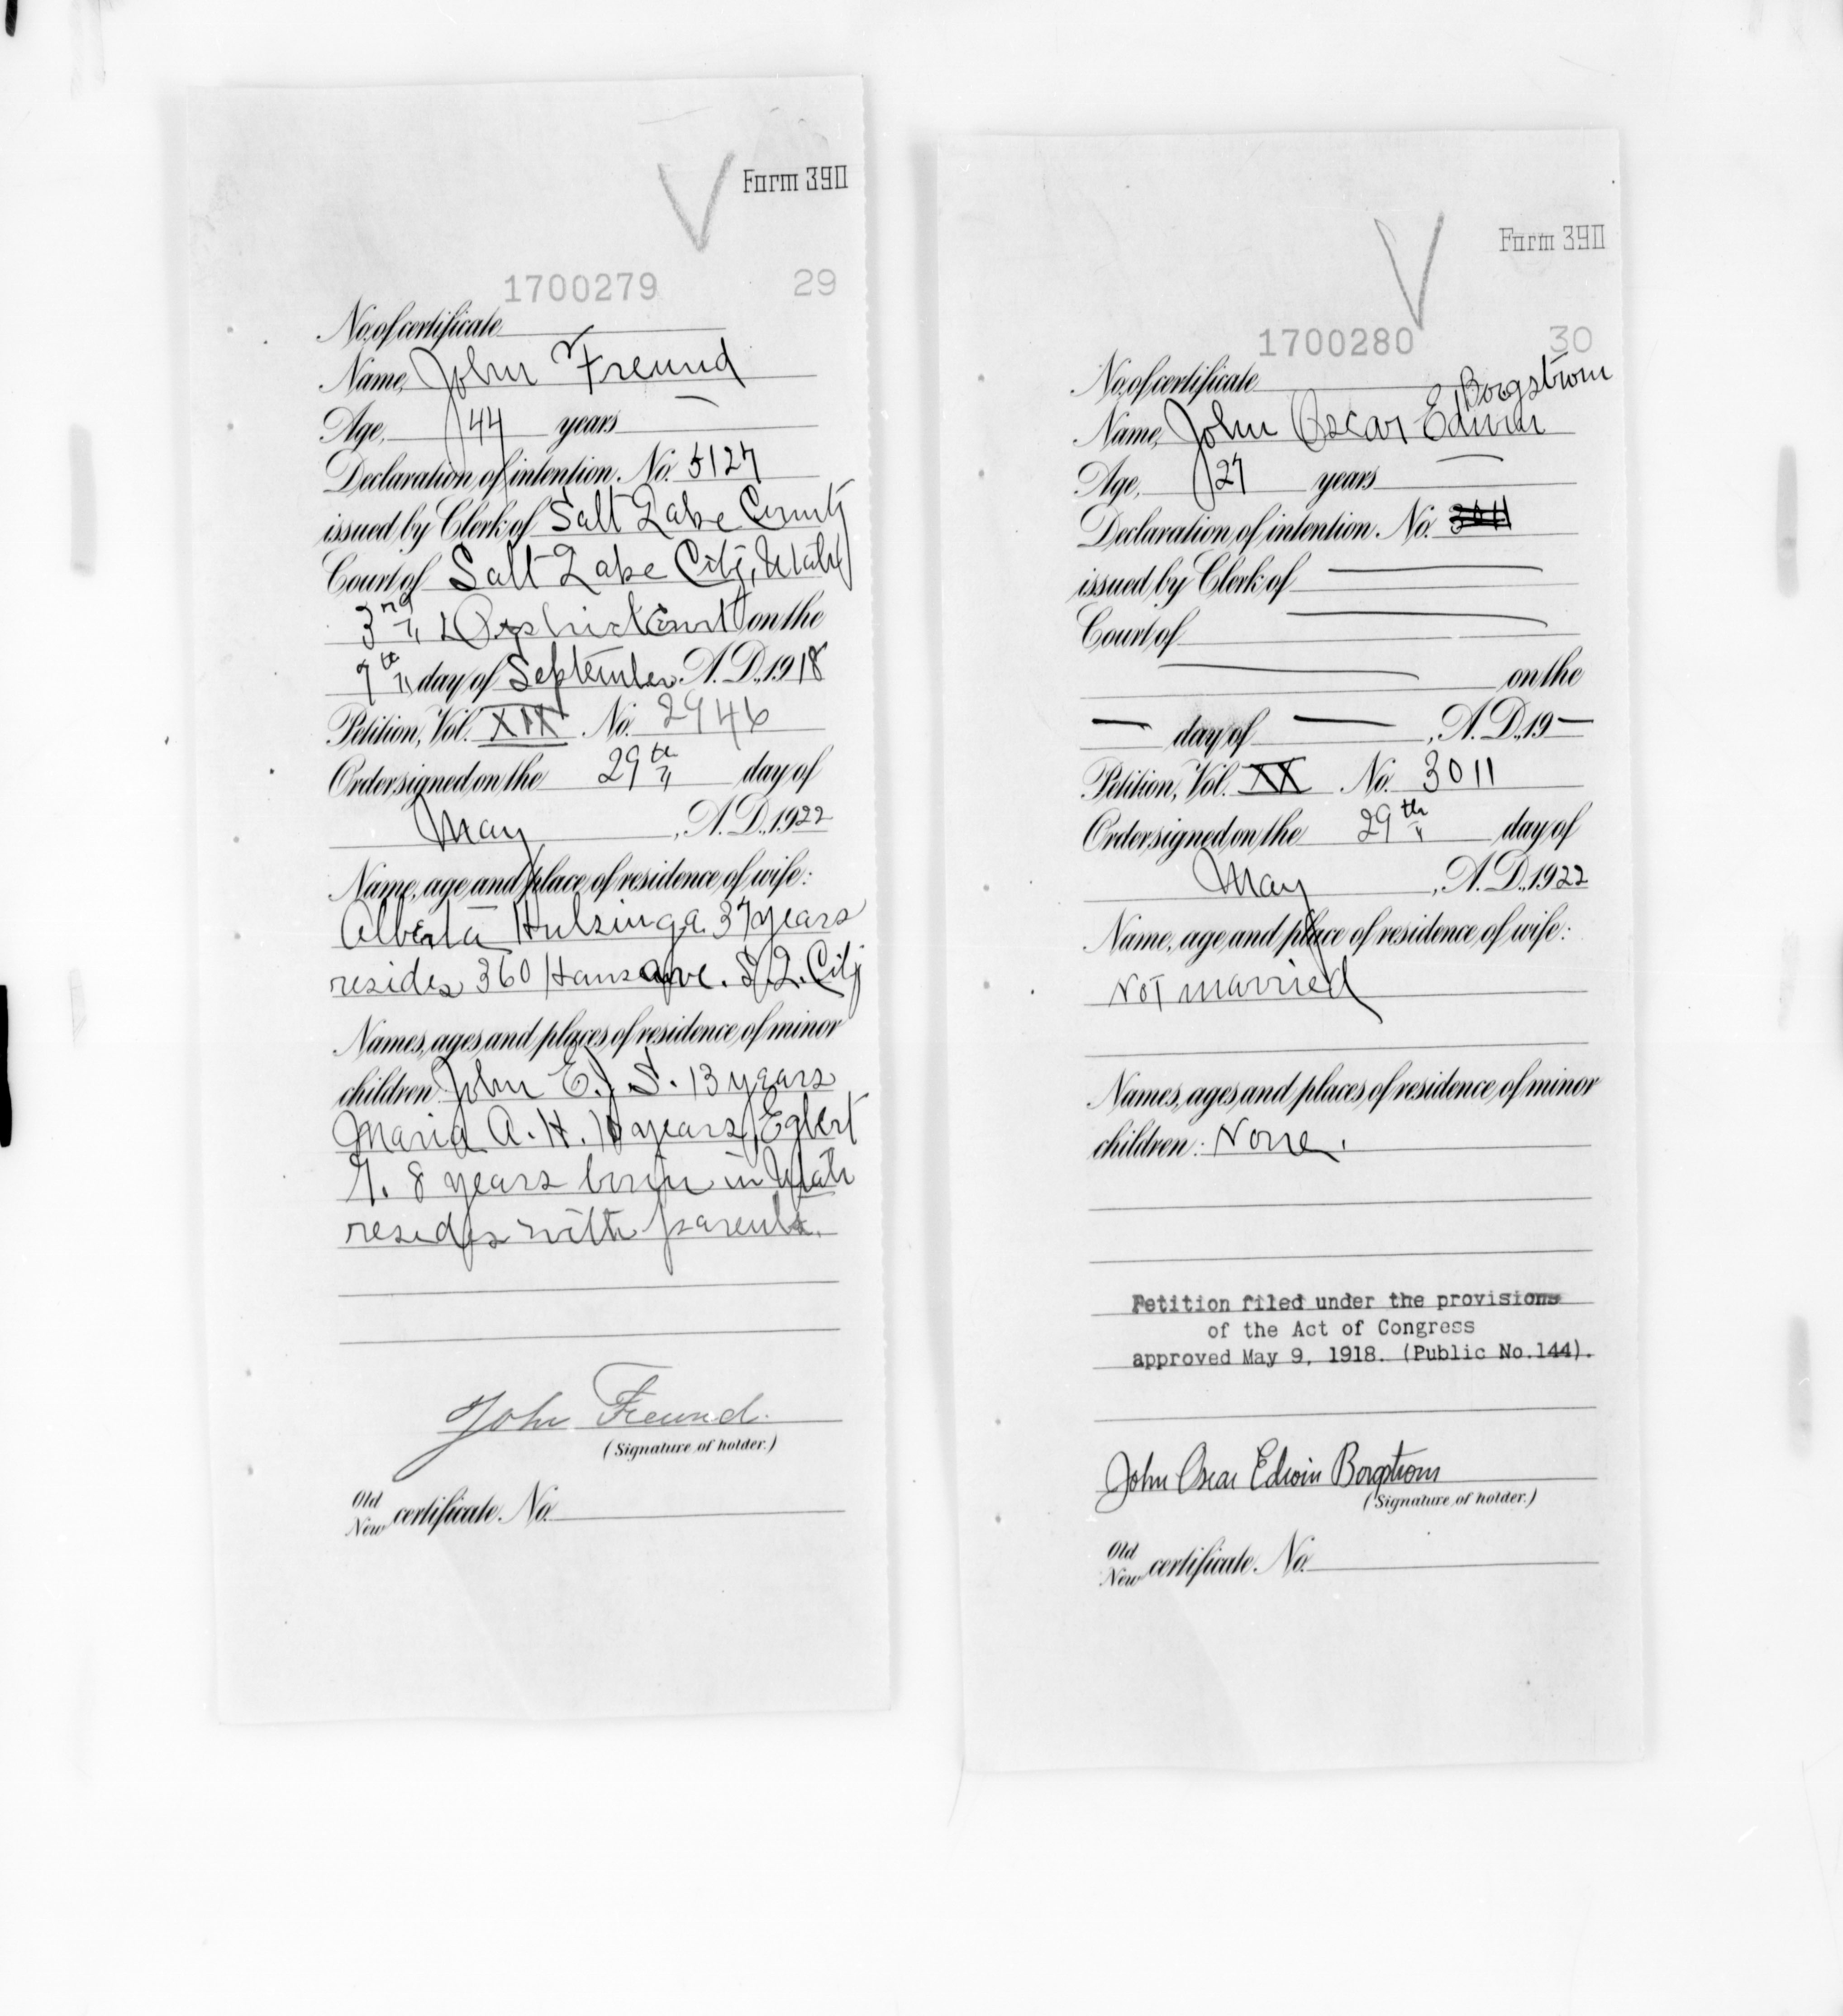 Form 390
1700279 29
No. of certificate
Name, John Freund
Age, 44 years
Declaration of intention, No. 5127
issued by Clerk of Salt Lake County
Court of Salt Lake City, Utah
3rd District Court on the
7th day of September A.D., 1918
Petition, Vol. XIX No. 2946
Order signed on the 29th day of
May, A.D., 1922
Name, age and place of residence of wife:
Alberta Hulsinga 37 years
resides 360 Hans ave. S. L. City
Names, ages, and places of residence of minor
children: John E. J. S. 13 years
Maria A. H. years, Egbert
8 years born in Utah
resides with parents.
John Freund.
(Signature of holder.)
Old
New certificate, No.
Form 390
1700280 30
No. of certificate
Borgstrom
Name, John Oscar Edwin
Age, 27 years
Declaration of intention, No. 3011
issued by Clerk of
Court of
on the
day of , A.D., 19
Petition, Vol. XX No. 3011
Order signed on the 29th day of
May, A.D., 1922
Name, age and place of residence of wife:
Not married
Names, ages, and places of residence of minor
children: None.
Petition filed under the provisions
of the Act of Congress
approved May 9, 1918. (Public No.144).
John Oscar Edwin Borgstrom
(Signature of holder.)
Old
New certificate, No.